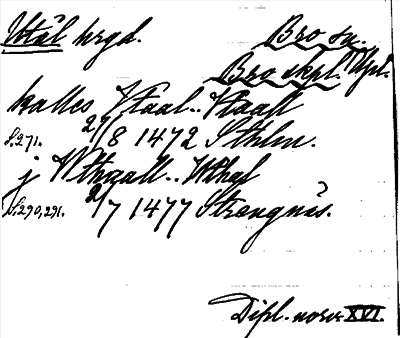 Utål hrgd. Bro sn.
Bro skpl. Upl.
kalles Vtaal.. Vtaall
S. 271. 27/8 1472 Sthlm.
j Wthaall.. Wthal
S. 290, 291. 2/7 1477 Strengnäs.
Dipl. norv. XVI.